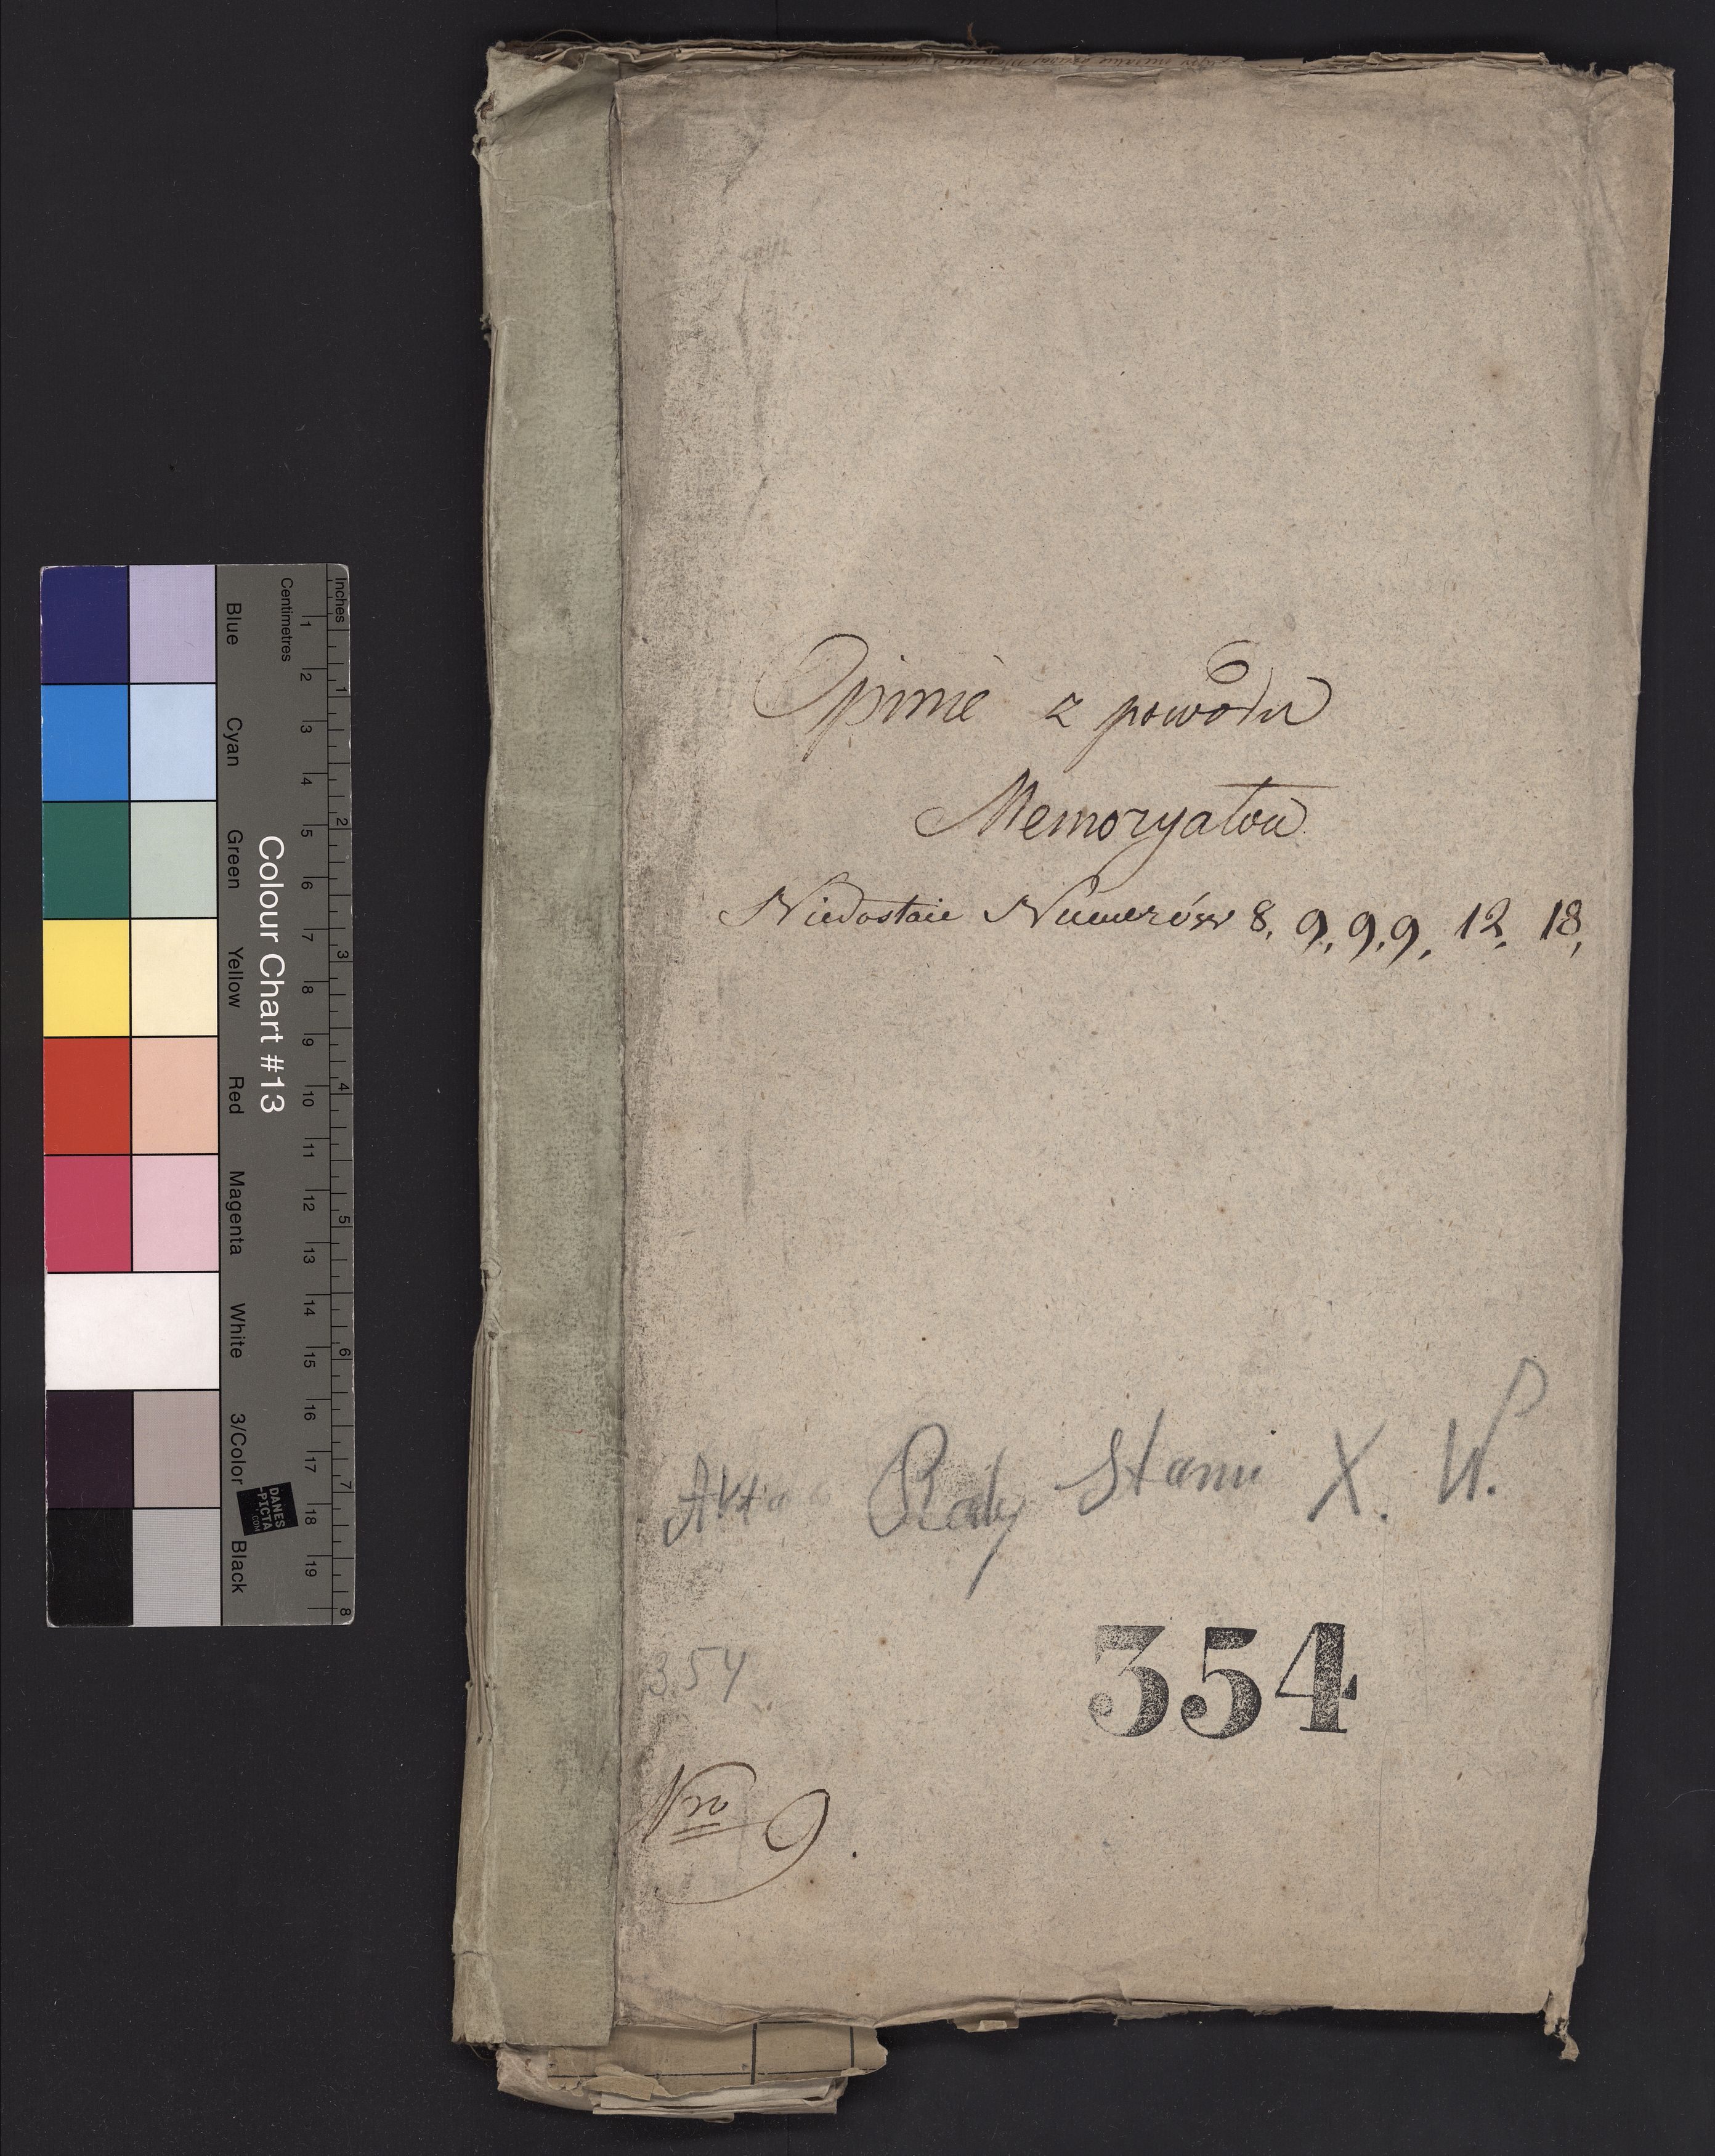 Opinie z powodu
Memoryałou
Niedostaie Numerów 8, 9, 9, 9, 12, 18,
Akta Rady Stanu X. W.
354
354
Nro 6.
Inches
Centimetres
1 2 3 4 5 6 7 8 9 10 11 12 13 14 15 16 17 18 19
1 2 3 4 5 6 7 8
Colour Chart #13
Blue Cyan Green Yellow Red Magenta White 3/Color Black
DANES
-PICTA
.COM